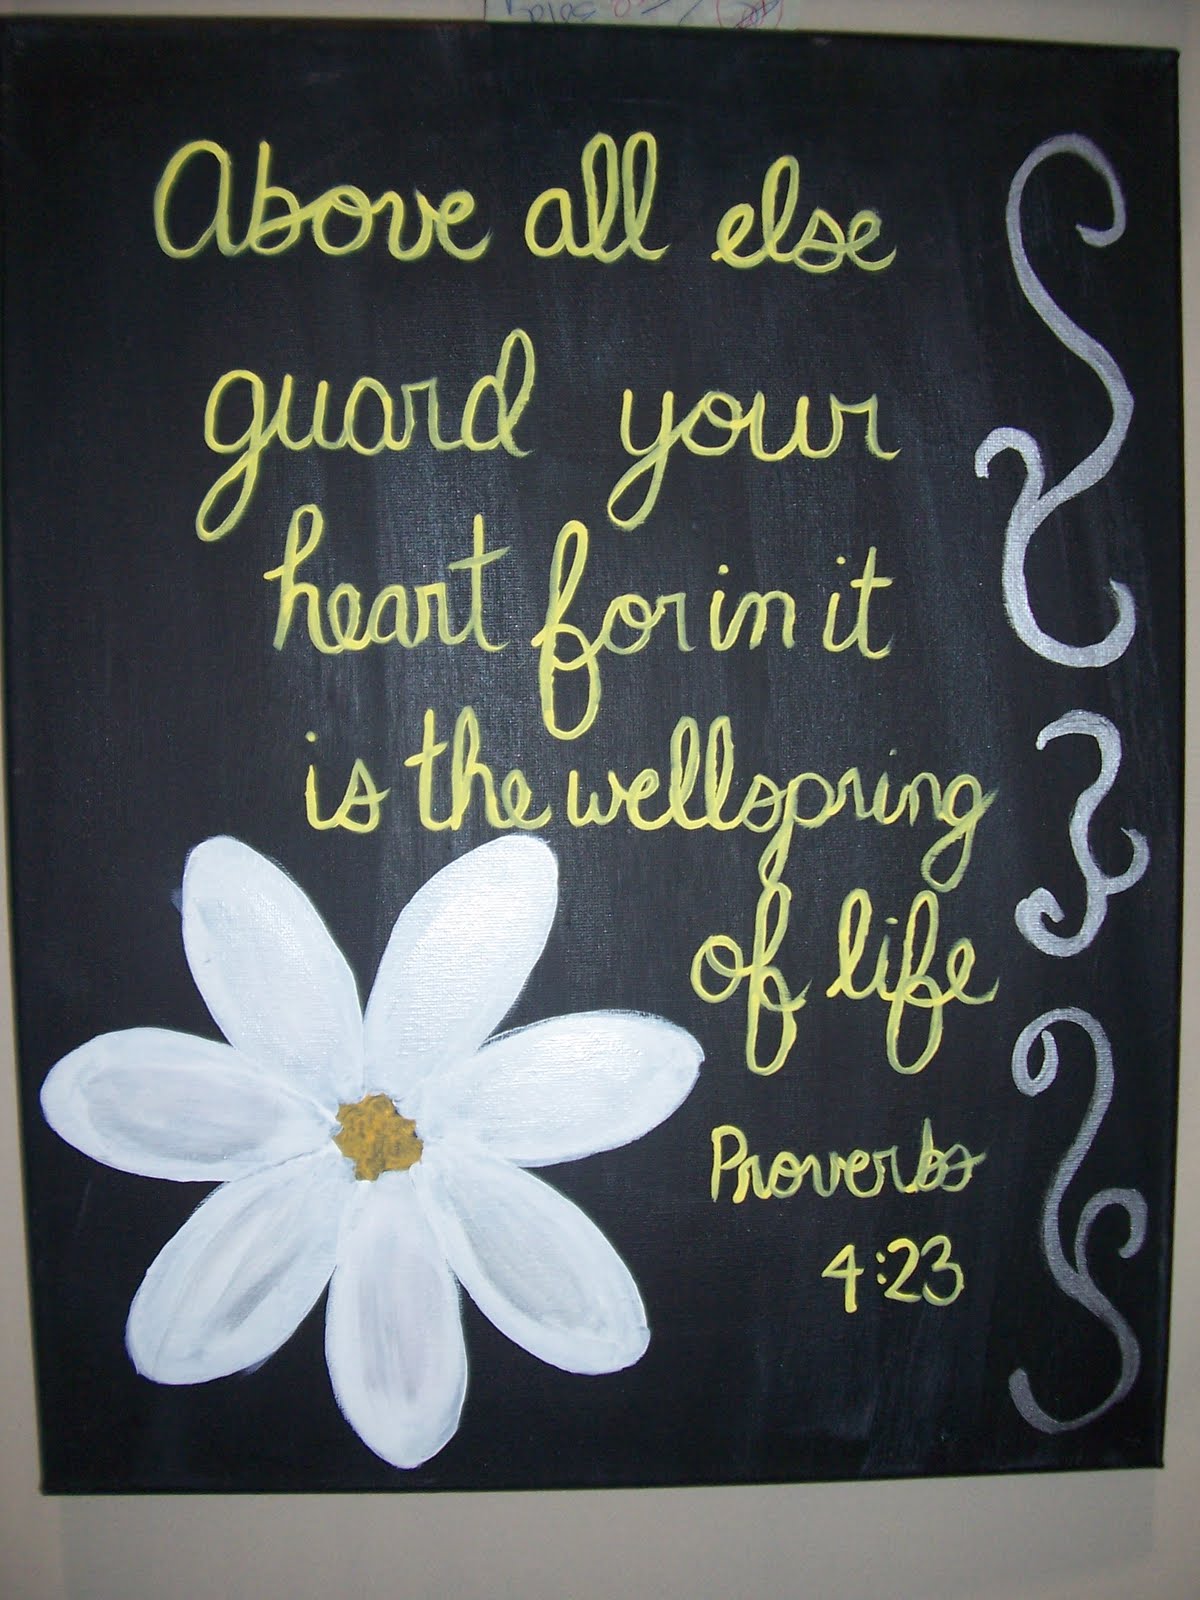 Above all else
guard your
heart for in it
is the wellspring
of life
Proverbs
4:23